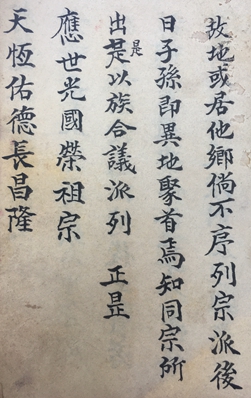 故地或居他鄉倘不序列宗派後
日子孫即異地聚首焉知同宗所
出是是以族合議派列 正昰
應世光國榮祖宗
天恆佑德長昌隆